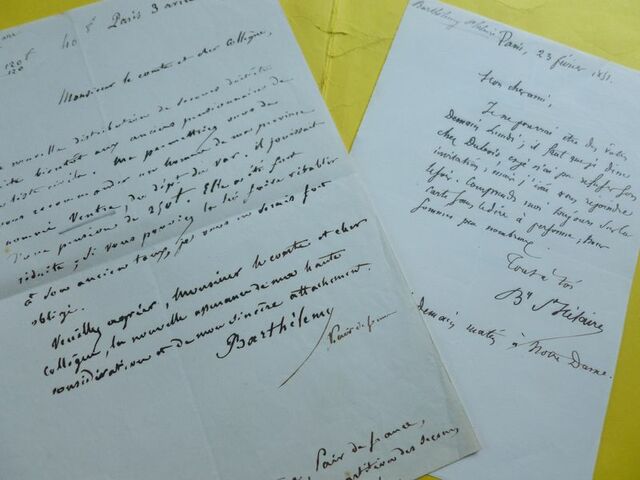 120f
120
40 f Paris 3 avril
Monsieur le comte et cher Collègue,
nouvelle distribution de secours
bientôt aux anciens pensionnaires de
liste civile. me permettriez vous de
vous recommander un homme de ma province
nommé Ventre, du dépt du var. il jouissait
d'une pension de 250f. Elle a été fort
réduite; si vous pouviez la lui faire rétablir
à son ancien taux, je vous en serais fort
obligé.
Veuillez agréer, Monsieur le comte et cher
collègue, la nouvelle assurance de ma haute
considération et de mon sincère attachement.
Barthélemy
Pair de france
Pair de france,
des secours,
Barthélemy St Hilaire
Paris, 23 février 1851.
Mon cher ami,
Je ne pourrai être des vôtres
Demain Lundi; il faut que je dîne
chez Dubois
invitation, mais j'irai vous rejoindre
le soir. Comptez moi toujours sur la
carte sans le dire à personne, nous
sommes peu nombreux.
Tout à toi
By St Hilaire
Demain matin à Notre Dame.